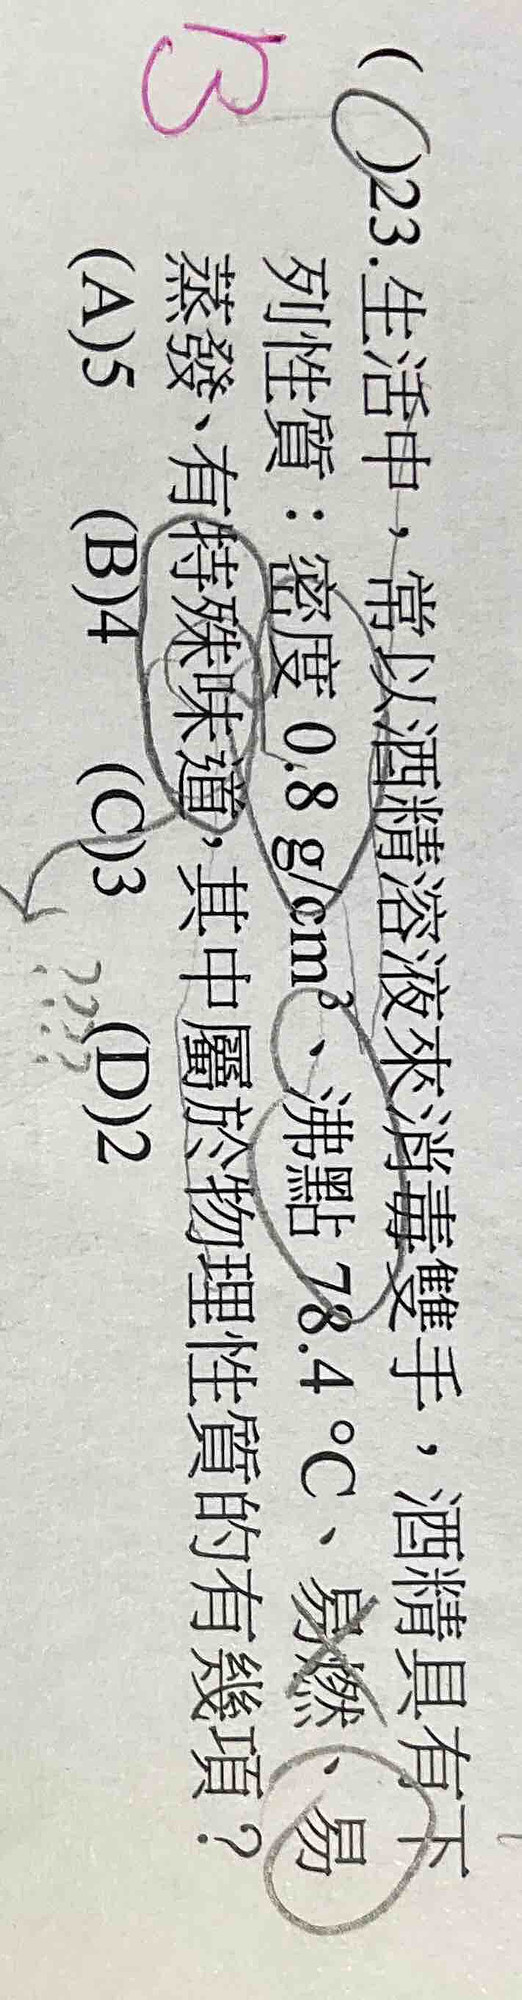 B
( C )23.生活中，常以酒精溶液來消毒雙手，酒精具有下
列性質：密度 0.8 g/cm³、沸點 78.4 °C、易燃、易
蒸發、有特殊味道，其中屬於物理性質的有幾項？
(A)5 (B)4 (C)3 (D)2
????